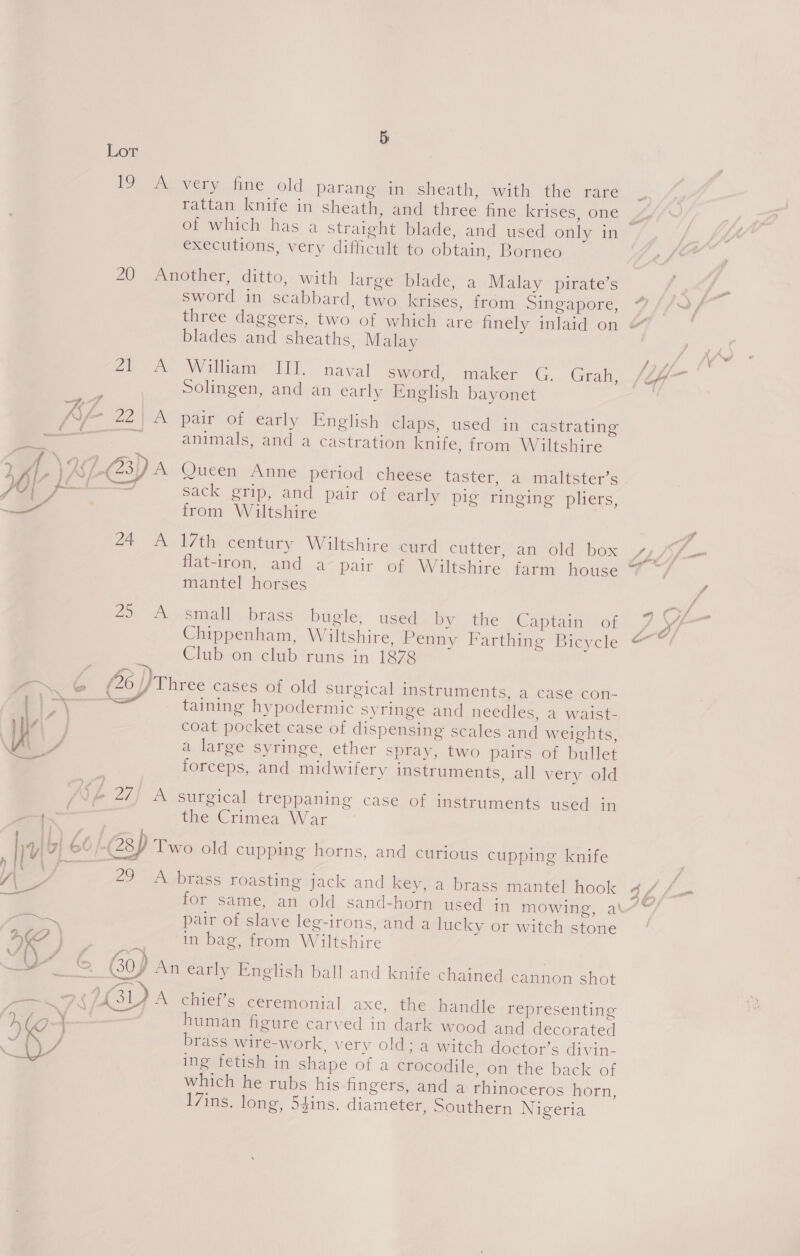 5
Lot
19 A very fine old parang in sheath, with the rare
rattan knife in sheath, and three fine krises, one
of which has a straight blade, and used only in
executions, very difficult to obtain, Borneo
20 Another, ditto, with large blade, a Malay pirate's
sword in scabbard, two krises, from Singapore,
three daggers, two of which are finely inlaid on
blades and sheaths, Malay
21 A William III. naval sword, maker G. Grah,
Solingen, and an early English bayonet
22 A pair of early English claps, used in castrating
animals, and a castration knife, from Wiltshire
23 A Queen Anne period cheese taster, a maltster's
sack grip, and pair of early pig ringing pliers,
from Wiltshire
24 A 17th century Wiltshire curd cutter, an old box
flat-iron, and a pair of Wiltshire farm house
mantel horses
25 A small brass bugle, used by the Captain of
Chippenham, Wiltshire, Penny Farthing Bicycle
Club on club runs in 1878
26 Three cases of old surgical instruments, a case con-
taining hypodermic syringe and needles, a waist-
coat pocket case of dispensing scales and weights,
a large syringe, ether spray, two pairs of bullet
forceps, and midwifery instruments, all very old
27 A surgical treppaning case of instruments used in
the Crimea War
28 Two old cupping horns, and curious cupping knife
29 A brass roasting jack and key, a brass mantel hook
for same, an old sand-horn used in mowing, a
pair of slave leg-irons, and a lucky or witch stone
in bag, from Wiltshire
30 An early English ball and knife chained cannon shot
31 A chief's ceremonial axe, the handle representing
human figure carved in dark wood and decorated
brass wire-work, very old; a witch doctor's divin-
ing fetish in shape of a crocodile, on the back of
which he rubs his fingers, and a rhinoceros horn,
17ins. long, 5½ins. diameter, Southern Nigeria